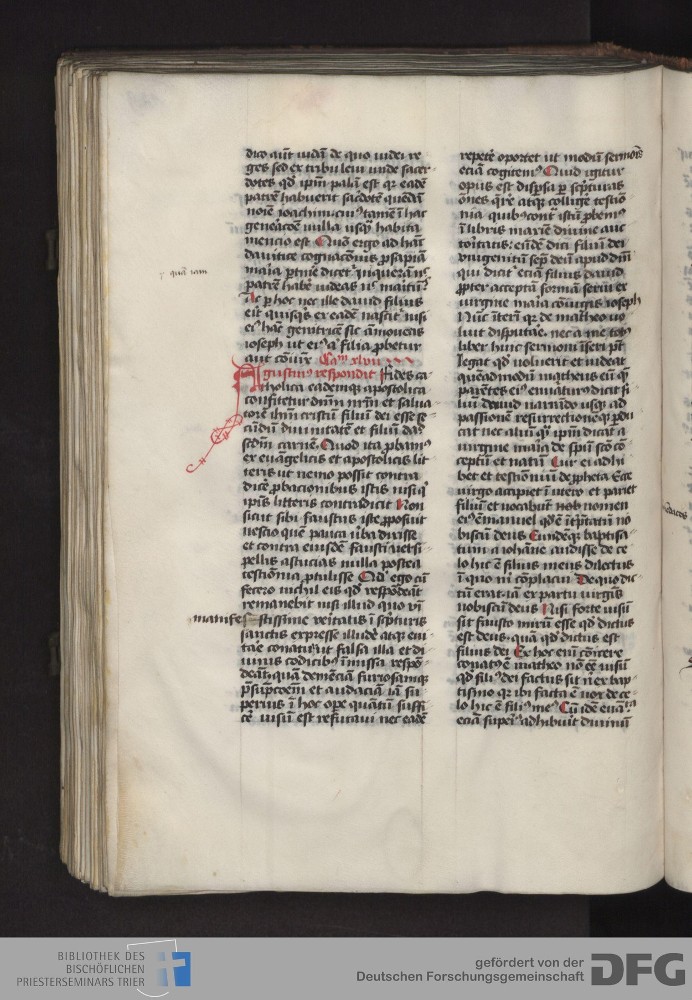 dico aūt iudā de quo iudei re
ges sed ex tribu leui unde sacer
dotes qd̄ ip̄m palā est qr eadē
patrē habuerit sacdotē quēdā
noīe ioachim cuiꝰ tamē ī hac
gen̄acōē nulla usqꝫ habita
mencio est Quō ergo ad hāc
dauitice cognacōnis ꝓsapiā
maīa ꝑtinē dicet
patrē habē uideas
Ac ꝑ hoc nec ille dauid filius
erit quisqꝫ ex eadē nascit nisi
eiꝰ hāc genitricē sic āmoueas
ioseph ut eiꝰ filia ꝓbetur
aut cōiux Capm xlvii
Augustinꝰ respondit Fides ca
tholica eademqꝫ apostolica
confitetur dn̄m nr̄m et salua
torē ihm̄ cristū filiū dei esse se
cūdū diuinitatē et filiū dd̄
scdm̄ carnē Quod ita ꝓbamꝰ
ex euāgelicis et apostolicis lit
teris ut nemo possit contra
dicē ꝓbacionibus istis nisi qͥ
ip̄is litteris contradicit Non
sicut sibi faustus iste ꝓposuit
nescio quē pauca ūba dixisse
et contra eiusdē fausti uersi
pellis astucias nulla postea
testiōnia ꝓtulisse Qd̄ ego cū
fecero nichil eis qd̄ respōdeāt
remanebit nisi illud quo vī
manifestissime veritatis ī scp̄turis
sanctis expresse illudē atqꝫ eui
tare conat̄ ut falsa illa et di
uinis codicibꝰ īmissa respō
deāt quā demēciā furiosamqꝫ
p̄sūpcoem et audaciā iā su
perius ī hoc oꝑe quātū suffi
cē uisū est refutaui nec eadē
repetē oportet ut modū sermōis
eciā cogitemꝰ Quid igitur
opus est disꝑsa ꝑ scp̄turas
on̄es q̄re atqꝫ collige testiō
nia quibꝰ contͣ istū ꝓbemꝰ
ī libris maxīe diuine auc
toritatis eūdē dici filiū dei
vnigenitū semꝑ deū apud dm̄
qui dicit̄ eciā filius dauid
ꝓpter acceptā formā serui ex
virgine maīa cōiungis ioseph
Nūc iterī qr de matheo vo
luit disputāe nec a me totꝰ
liber huic sermoni īseri pt̄
legat qd̄ uoluerit et uideat
quēadmodū matheus eū qͥ
parētes eiꝰ enuāturꝰ dicit fi
liū dauid narrādo usqꝫ ad
passionē resurrectionēqꝫ ꝑdu
cat nec aliū qͣ ip̄m dicat a
virgine maīa de spū sct̄o cō
ceptū et natū Cui et adhi
bet et testiōniū de ꝓpheta Ecce
virgo accipiet ī utero et pariet
filiū et uocabūt nomen
eiꝰ emanuel qd̄ ē īt̄ꝑtatū no
biscū deus Eundēqꝫ baptisa
tum a iohāne audisse de ce
lo hic ē filius meus dilectus
ī quo mi cōplacui De quo dic
tū erat iā ex partu virgīs
nobiscū deus Nisi forte uisū
sit fausto minꝰ esse qd̄ dictus
est deus quā qd̄ dictus est
filius dei Ex hoc enī cōicere
conatꝰ ē matheo nō eē uisū
qd̄ filiꝰ dei factus sit n̄ ex bap
tismo qr ibi facta ē uox de ce
lo hic ē filiꝰ meꝰ Cū idē euāta
eciā superiꝰ adhibuit diuinū
quā iam
BIBLIOTHEK DES
BISCHÖFLICHEN
PRIESTERSEMINARS TRIER
gefördert von der
Deutschen Forschungsgemeinschaft
DFG